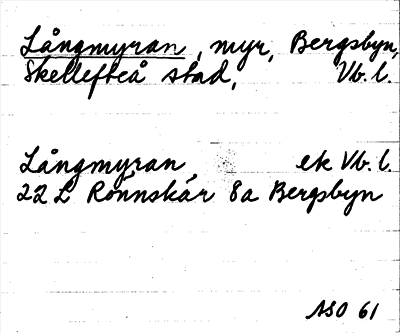 Långmyran, myr, Bergsbyn,
Skellefteå stad, Vb. l.
Långmyran, ek Vb. l.
22 L Rönnskär 8a Bergsbyn
ASO 61